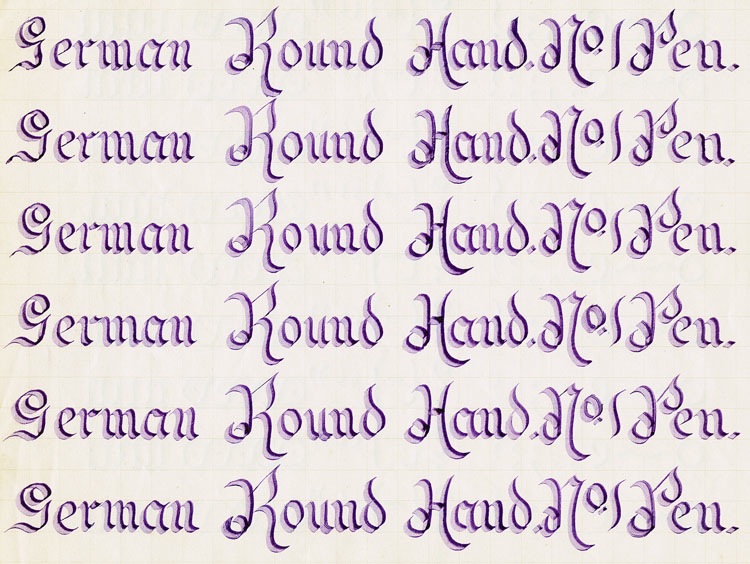 German Round Hand. No. 1 Pen.
German Round Hand. No. 1 Pen.
German Round Hand. No. 1 Pen.
German Round Hand. No. 1 Pen.
German Round Hand. No. 1 Pen.
German Round Hand. No. 1 Pen.